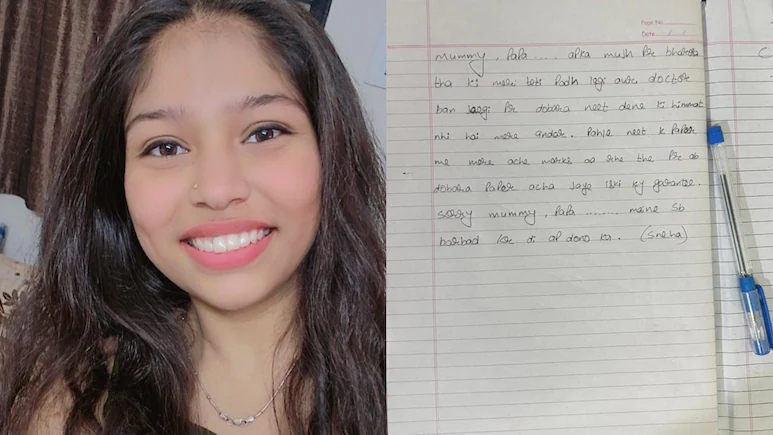 Page No.
Date
mummy, Papa ..... apka mujh Pr bharosa
tha ki meri beti Padh legi aur doctor
ban jaegi Pr dobara neet dene ki himmat
nhi hai mere andar. Pahle neet k PaPer
me mere ache marks aa rhe the Pr ab
dobara PaPer acha jaye iski ky garantee.
sorry mummy, PaPa ........ maine sb
barbad kr di ap dono ka. (Sneha)